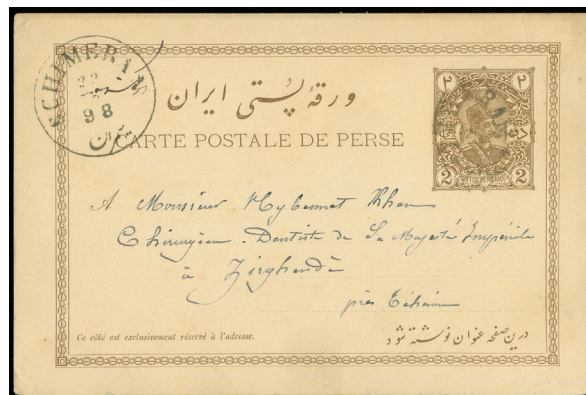 SCHIMERAN
22
98
ورقهٔ پستی ایران
CARTE POSTALE DE PERSE
۲ ۲
2 2
A Monsieur Hybennet Khan
Chirurgien-Dentiste de Sa Majesté Impériale
à Zirghendè
près Téhéran
Ce côté est exclusivement réservé à l'adresse.
درین صفحه عنوان نوشته شود